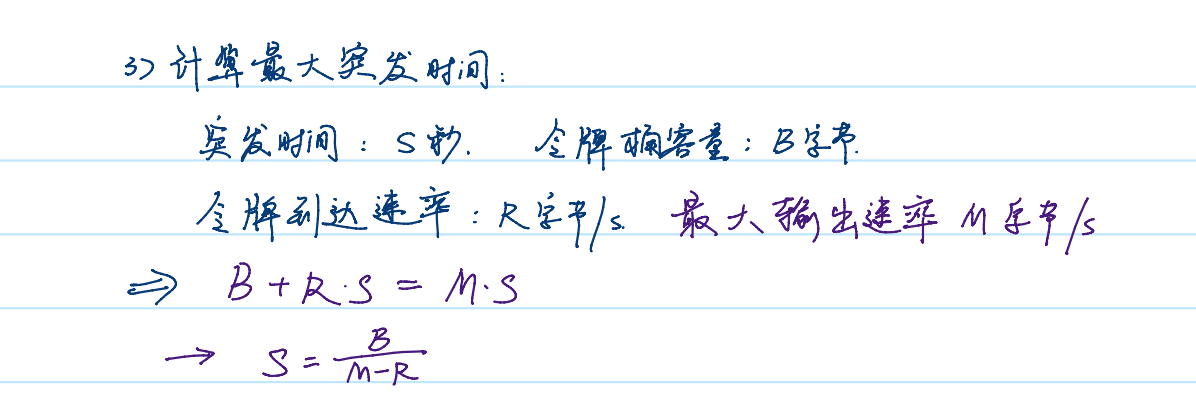 3) 计算最大突发时间:
突发时间: S秒. 令牌桶容量: B字节.
令牌到达速率: R字节/s. 最大输出速率 M字节/s
⇒ B+R·S = M·S
→ S = B/(M-R)